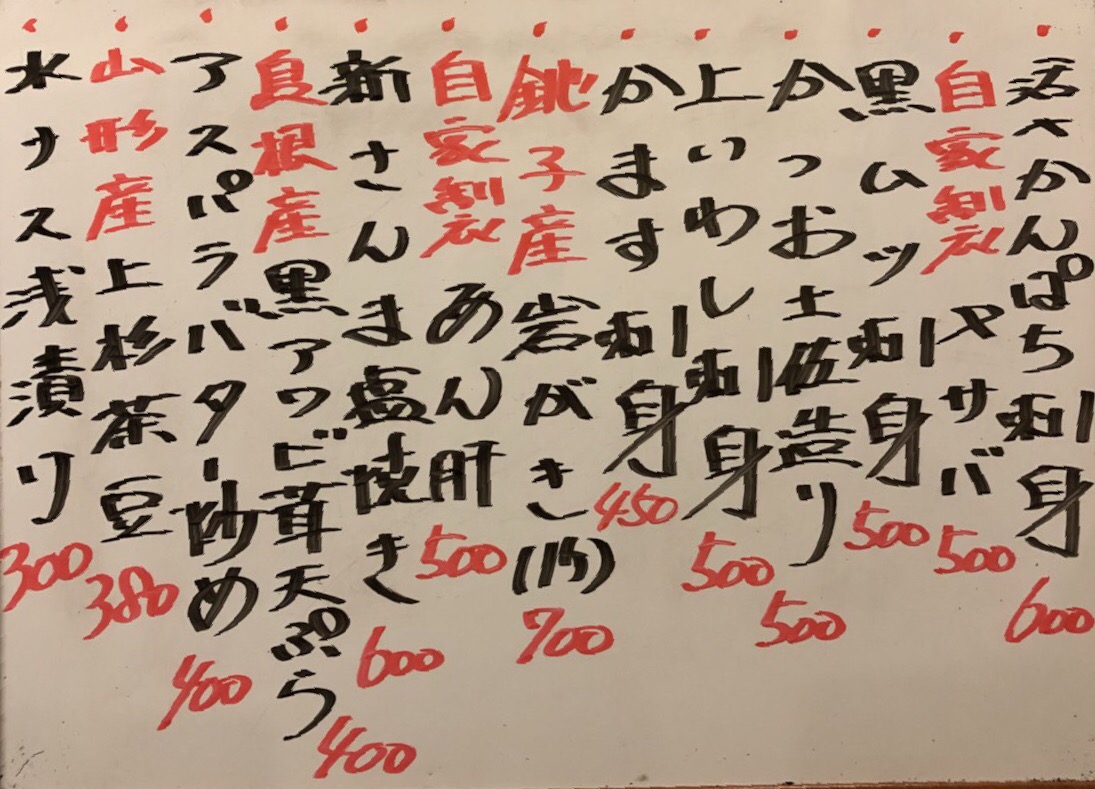 活〆かんぱち刺身 600
自家製〆サバ 500
黒ムツ刺身 500
かつお土佐造り 500
上いわし刺身 500
かます刺身 450
銚子産岩がき(1ケ) 700
自家製あん肝 500
新さんま塩焼き 600
島根産黒アワビ茸天ぷら 400
アスパラバター炒め 400
山形産上杉茶豆 380
水ナス浅漬り 300